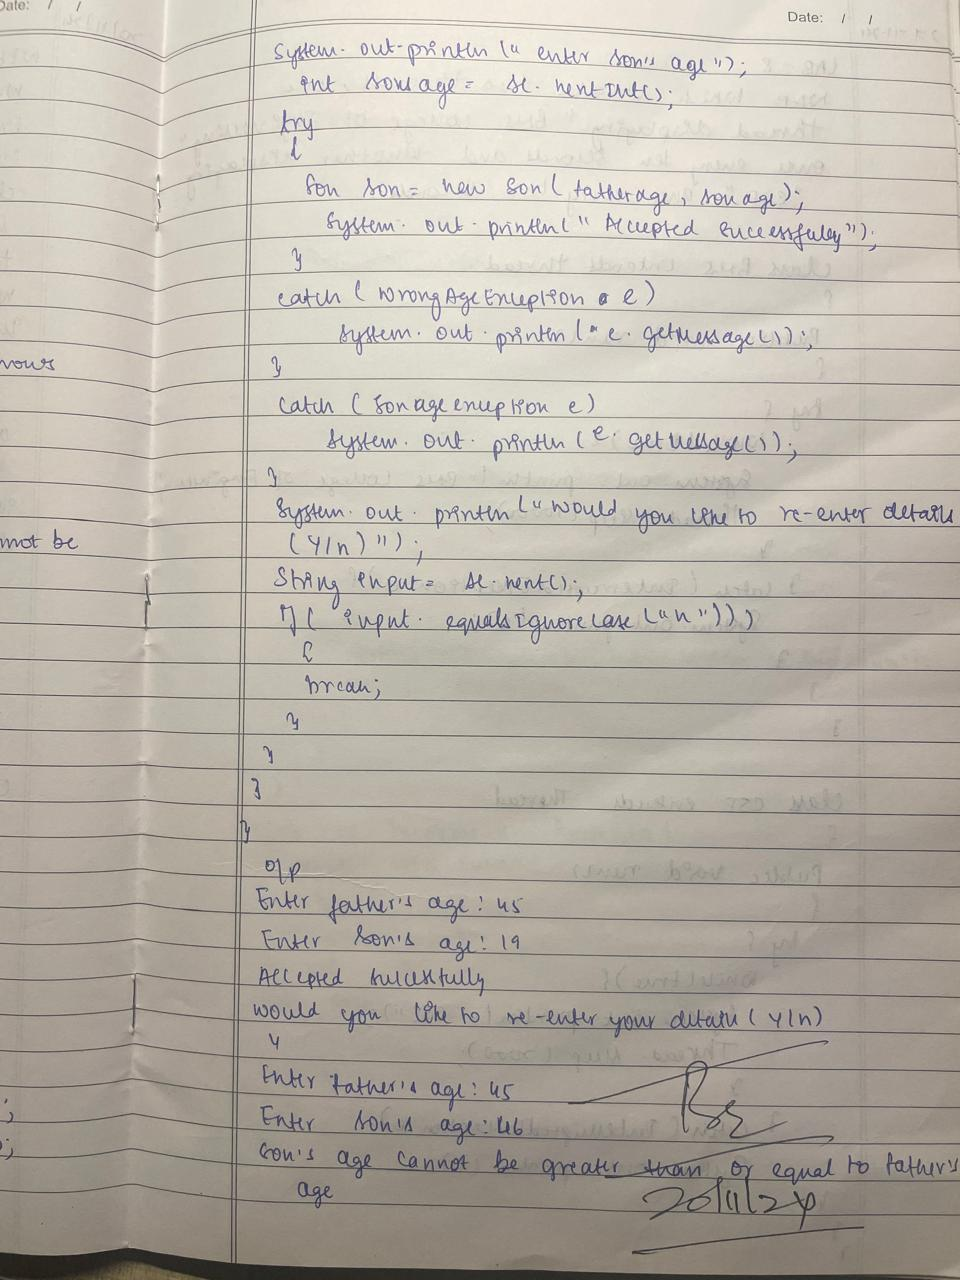 Date: / /
Date: / /
System. out.println (" enter son's age");
int sonsage = sc. nextInt();
try
{
Son son = new Son ( fatherage, sonage);
System. out. println(" Accepted Successfully");
}
catch ( WrongAgeException e )
System. out. println (" e. getMessage());
}
catch ( Sonageexception e)
System. out. println ( e. getMessage());
}
System. out. println (" would you like to re-enter details
(Y/n) ");
String input = sc. next();
if ( input. equalsIgnoreCase ("n")))
{
break;
}
}
}
}
O/P
Enter father's age : 45
Enter Son's age : 19
Accepted successfully
would you like to re-enter your details (Y/n)
Y
Enter father's age : 45
Enter son's age : 46
Son's age cannot be greater than or equal to father's
age
20/11/24
nows
not be
;
;